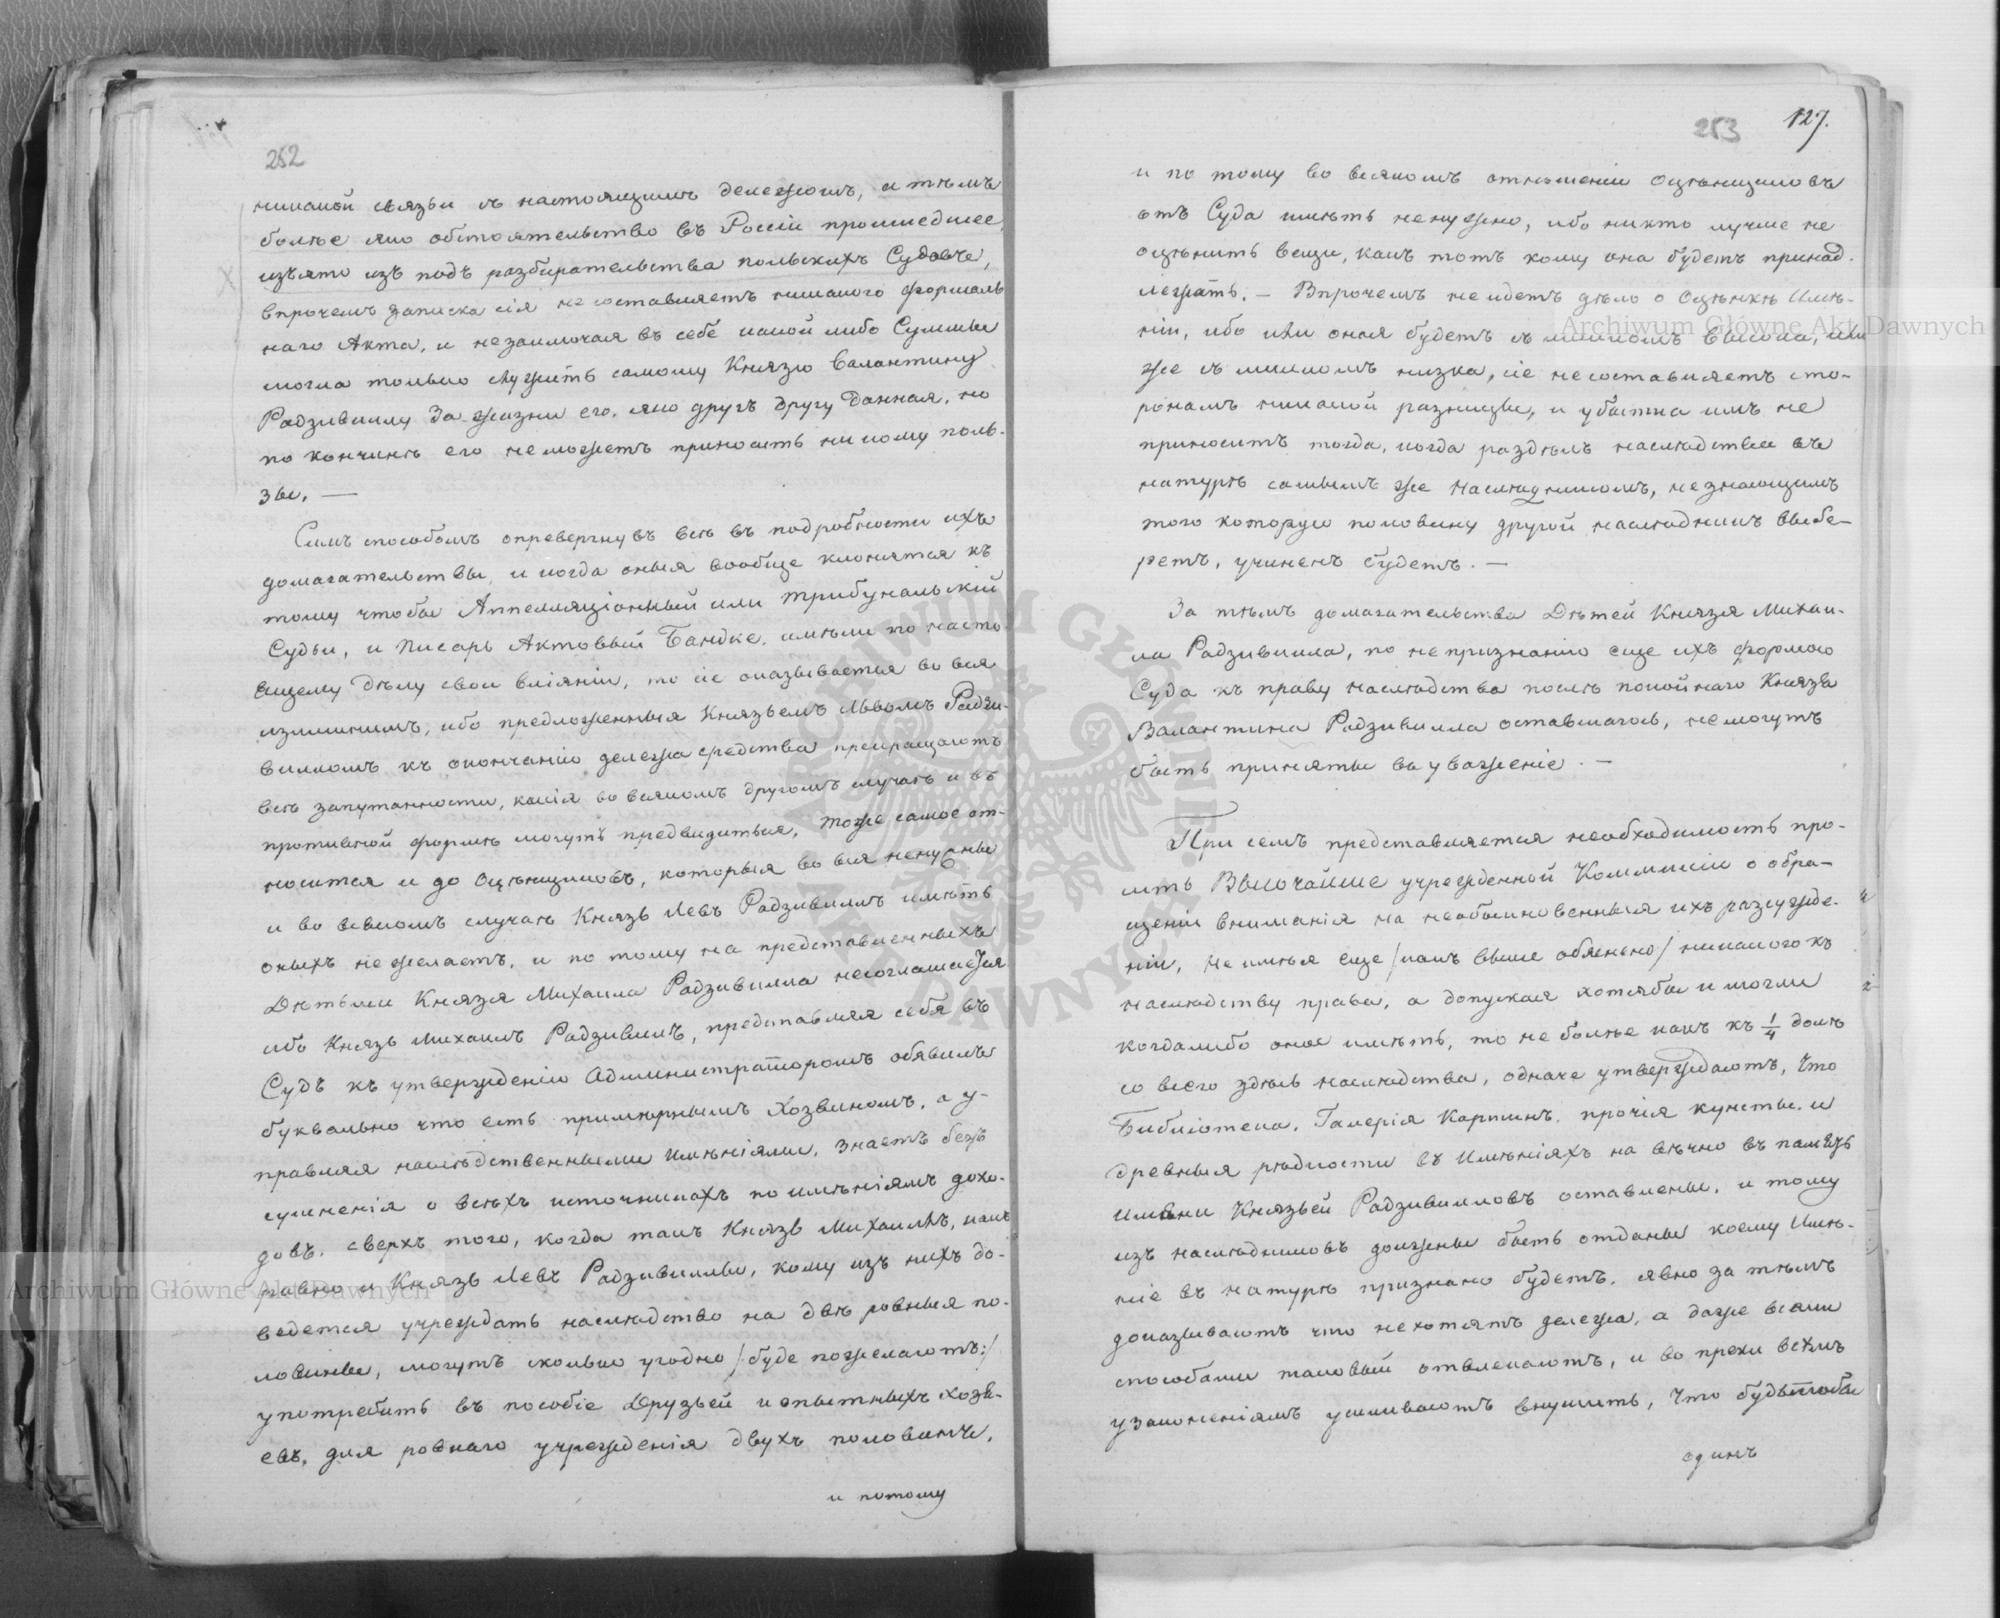 252
никакой связи съ настоящимъ дележомъ, а тѣмъ
болѣе яко обстоятельство въ Россіи прошедшее,
изъято изъ подъ разбирательства польскихъ Судовъ,
впрочемъ записка сія не составляетъ никакого формаль
наго Акта, и незаключая въ себѣ какой либо Суммы
могла только служить самому Князю Валантину
Радзивиллу За жизни его, яко другъ другу данная, но
по кончинѣ его неможетъ приносить никому поль-
зы. —
Симъ способомъ опревергнувъ всѣ въ подробности ихъ
домагательствы, и когда оныя вообще клонятся къ
тому чтобы Аппелляціонный или Трибунальскій
Судьи, и Писарь Актовый Бандке, имѣли по насто
ящему Дѣлу свои вліяніи, то сіе оказывается во вся
излишнимъ, ибо предложенныя Княземъ Львомъ Радзи-
вилломъ къ окончанію дележа средства прекращаютъ
всѣ запутанности, какія во всякомъ другомъ случаѣ и въ
противной формѣ могутъ предвидиться, тоже самое от-
носится и до Оцѣнщиковъ, которыя во вся ненужны
и во всякомъ случаѣ Князь Левъ Радзивиллъ имѣть
оныхъ нежелаетъ, и по тому на представленныхъ
Дѣтьми Князя Михаила Радзивилла несоглашается
ибо Князь Михаилъ Радзивиллъ, представляя себя въ
Судъ къ утвержденію Администраторомъ обявилъ
буквально что есть примѣрнымъ Хозяиномъ, а у-
правляя наслѣдственными Имѣніями, знаетъ безъ
сумненія о всѣхъ источникахъ по имѣніямъ дохо-
довъ, сверхъ того, когда такъ Князь Михаилъ, какъ
равно и Князь Левъ Радзивиллы, кому изъ нихъ до-
ведется учреждать наслѣдство на двѣ ровныя по-
ловины, могутъ сколько угодно /: буде пожелаютъ:/
употребить въ пособіе Друзьей и опытныхъ хозя-
евъ, для ровнаго учрежденія двухъ половинъ,
и потому
253
127.
и по тому во всякомъ отношеніи Оцѣнщиковъ
отъ Суда имѣть ненужно, ибо никто лучше не
оцѣнить вещи, какъ тотъ кому она будетъ принад.
лежать. — Впрочемъ неидетъ дѣло о Оцѣнкѣ Имѣ-
ніи, ибо или оная будетъ съ лишкомъ высока, или
же съ лишкомъ низка, сіе несоставляетъ сто-
ронамъ никакой разницы, и убытка имъ не
приноситъ тогда, когда раздѣлъ наслѣдства въ
натурѣ самымъ же Наслѣдникомъ, незнающимъ
того которую половину другой наслѣдникъ выбе-
ретъ, учиненъ будетъ. —
За тѣмъ домагательства Дѣтей Князя Михаи-
ла Радзивилла, по непризнанію еще ихъ формою
Суда къ праву наслѣдства послѣ покойнаго Князя
Валантина Радзивилла оставшагось, немогутъ
быть приняты въ уваженіе. —
При семъ представляется необходимость про-
сить Высочайше учрежденной Коммисіи о обра-
щеніи вниманія на необыкновенныя ихъ разсужде-
ніи, неимѣя еще /какъ выше обявлено/ никакого къ
наслѣдству права, а допуская хотябы и могли
когдалибо оное имѣть, то не болѣе какъ къ 1/4 долѣ
со всего здѣсь наслѣдства, одначе утверждаютъ, что
Библіотека, Галерія Картинъ, прочія кунсты, и
древныя рѣдкости въ Имѣніяхъ на вѣчно въ память
имяни Князьей Радзивилловъ оставлены, и тому
изъ наслѣдниковъ должны быть отданы коему Имѣ-
ніе въ натурѣ признано будетъ, явно за тѣмъ
доказываютъ что нехотятъ дележа, а даже всями
способами таковый отвлекаютъ, и во преки всѣмъ
узаконеніямъ усиливаютъ внушить, что будьтобы
одинъ
Archiwum Główne Akt Dawnych
Archiwum Główne Akt Dawnych
ARCHIWUM GŁÓWNE AKT DAWNYCH